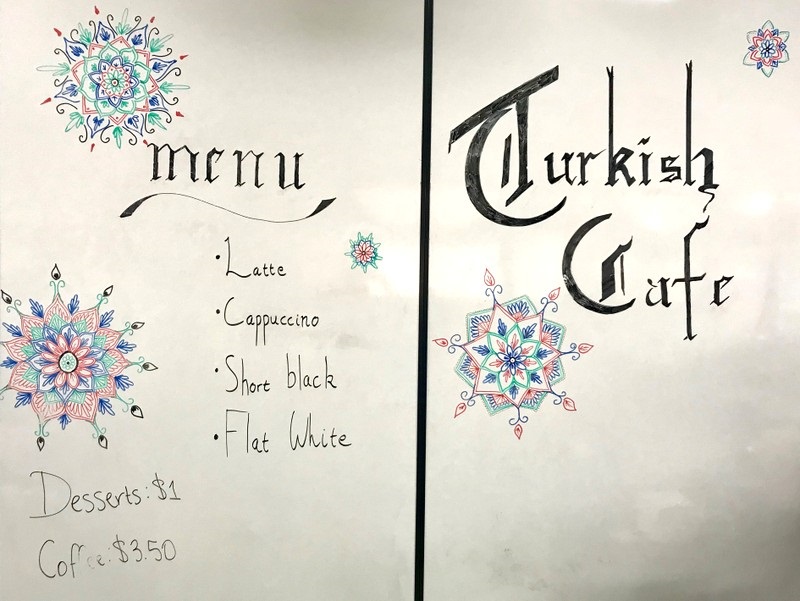 menu
• Latte
• Cappuccino
• Short black
• Flat White
Desserts: $1
Coffee: $3.50
Turkish
Cafe